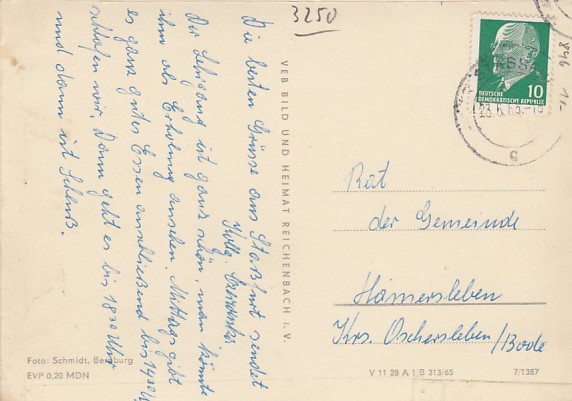 3250
Die besten Grüsse aus Staßfurt sendet
Kolln.
Der Lehrgang ist ganz schön, man könnte
ihn als Erholung ansehen. Mittags gibt
es ganz gutes Essen anschließend bis 14³⁰ Uhr
schlafen wir. Dann geht es bis 18³⁰ Uhr
und dann ist Schluß.
VEB BILD UND HEIMAT REICHENBACH I. V.
Foto: Schmidt, Bernburg
EVP 0,20 MDN
DEUTSCHE
DEMOKRATISCHE REPUBLIK
10
Rat
der Gemeinde
Hamersleben
Krs. Oschersleben/Bode
V 11 28 A 1 B 313/65
7/1387